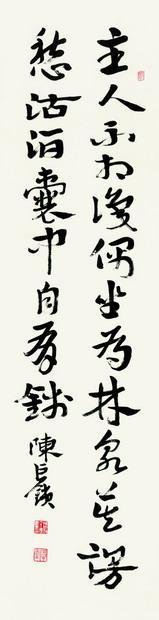 主人不相識偶坐為林泉莫謾
愁沽酒囊中自有錢
陳巨鎖